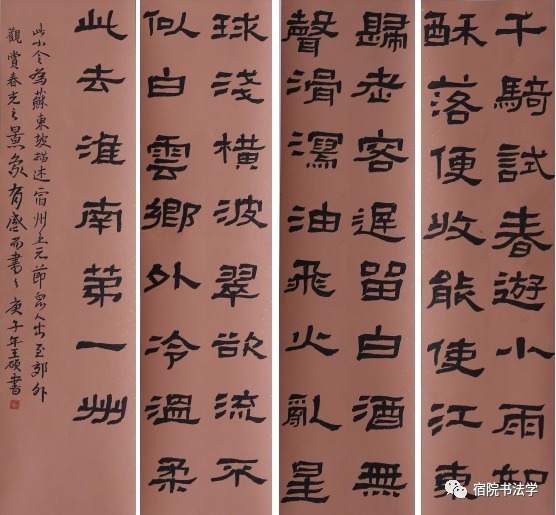 千騎試春遊小雨如
酥落便收能使江東
歸老客遲留白酒無
聲滑瀉油飛火亂星
球淺橫波翠欲流不
似白雲鄉外冷溫柔
此去淮南第一州
此小令為蘇東坡描述宿州上元節眾人出至郊外
觀賞春光之景象有感而書之庚子年王碩書
宿院书法学